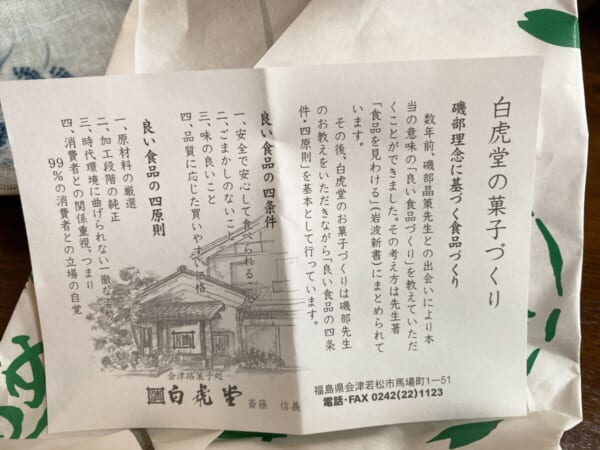 白虎堂の菓子づくり
磯部理念に基づく食品づくり
数年前、磯部晶策先生との出会いにより本
当の意味の「良い食品づくり」を教えていただ
くことができました。その考え方は先生著
「食品を見わける」（岩波新書）にまとめられて
います。
その後、白虎堂のお菓子づくりは磯部先生
のお教えをいただきながら「良い食品の四条
件・四原則」を基本として行っています。
良い食品の四条件
一、安全で安心して食べられること
二、ごまかしのないこと
三、味の良いこと
四、品質に応じた買いやすい価格
良い食品の四原則
一、原材料の厳選
二、加工段階の純正
三、時代環境に曲げられない一徹な
四、消費者との関係重視、つまり
99%の消費者との立場の自覚
会津路菓子処
白虎堂 斎藤 信義
福島県会津若松市馬場町1ー51
電話・FAX 0242(22)1123